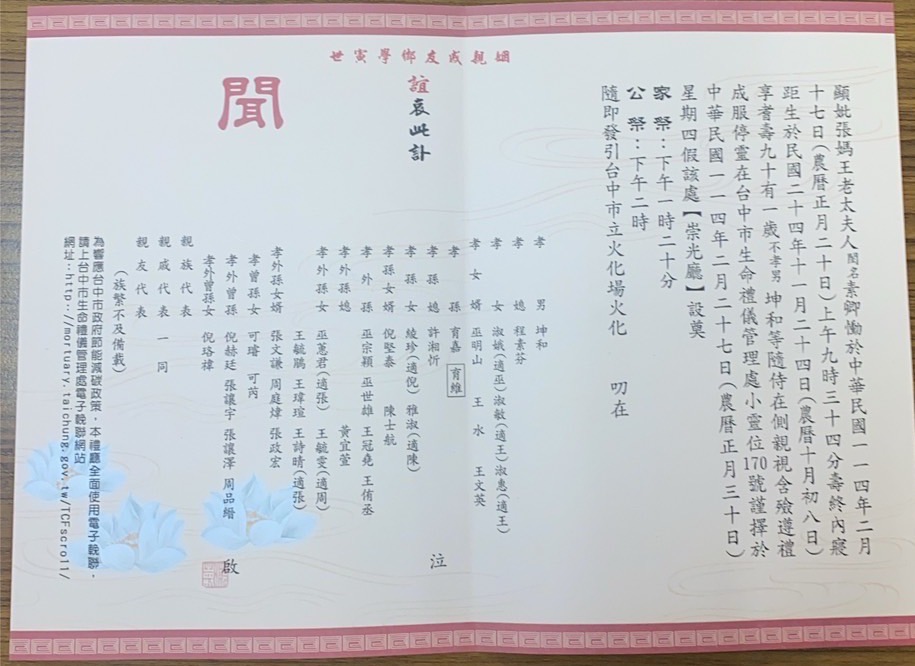 顯妣張媽王老太夫人閨名素卿慟於中華民國一一四年二月
十七日(農曆正月二十日)上午九時三十四分壽終內寢
距生於民國二十四年十一月二十四日(農曆十月初八日)
享耆壽九十有一歲不孝男坤和等隨侍在側親視含殮遵禮
成服停靈在台中市生命禮儀管理處小靈位170號謹擇於
中華民國一一四年二月二十七日(農曆正月三十日)
星期四假該處【崇光廳】設奠
家祭:下午一時二十分
公祭:下午二時
隨即發引台中市立火化場火化 叨在
姻親戚友鄉學寅世
誼哀此訃
聞
孝男 坤和
孝媳 程素芬
孝女 淑娥(適巫)淑敏(適王)淑惠(適王)
孝女婿 巫明山 王水 王文英
孝孫 育嘉 育維
孝孫媳 許湘忻
孝孫女 綾珍(適倪) 雅淑(適陳)
孝孫女婿 倪堅泰 陳士航
孝外孫 巫宗穎 巫世雄 王冠堯 王侑丞
孝外孫媳 黃宜萱
孝外孫女 巫蕙君(適張) 王毓雯(適周)
王毓鵑 王瑋瑄 王詩晴(適張)
孝外孫女婿 張文謙 周庭煒 張政宏
孝曾孫女 可璿 可芮
孝外曾孫 倪赫廷 張讓宇 張讓澤 周品縉
孝外曾孫女 倪珞褘
泣
啟
親族代表
親戚代表 一同
親友代表
(族繁不及備載)
為響應台中市政府節能減碳政策,本禮廳全面使用電子輓聯,
請上台中市生命禮儀管理處電子輓聯網站
網址:http://mortuary.taichung.gov.tw/TCFscroll/